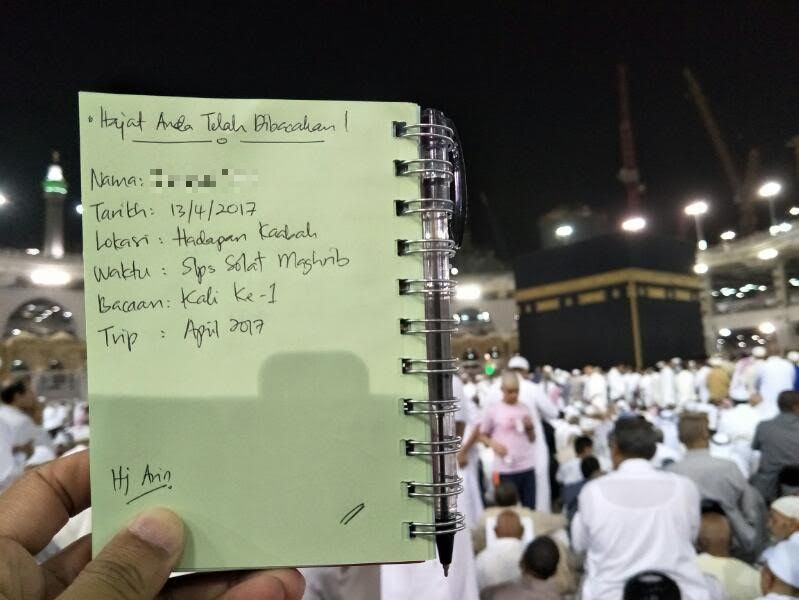 Hajat Anda Telah Dibacakan!
Nama:
Tarikh: 13/4/2017
Lokasi: Hadapan Kaabah
Waktu: Slps Solat Maghrib
Bacaan: Kali Ke-1
Trip: April 2017
Hj Arin